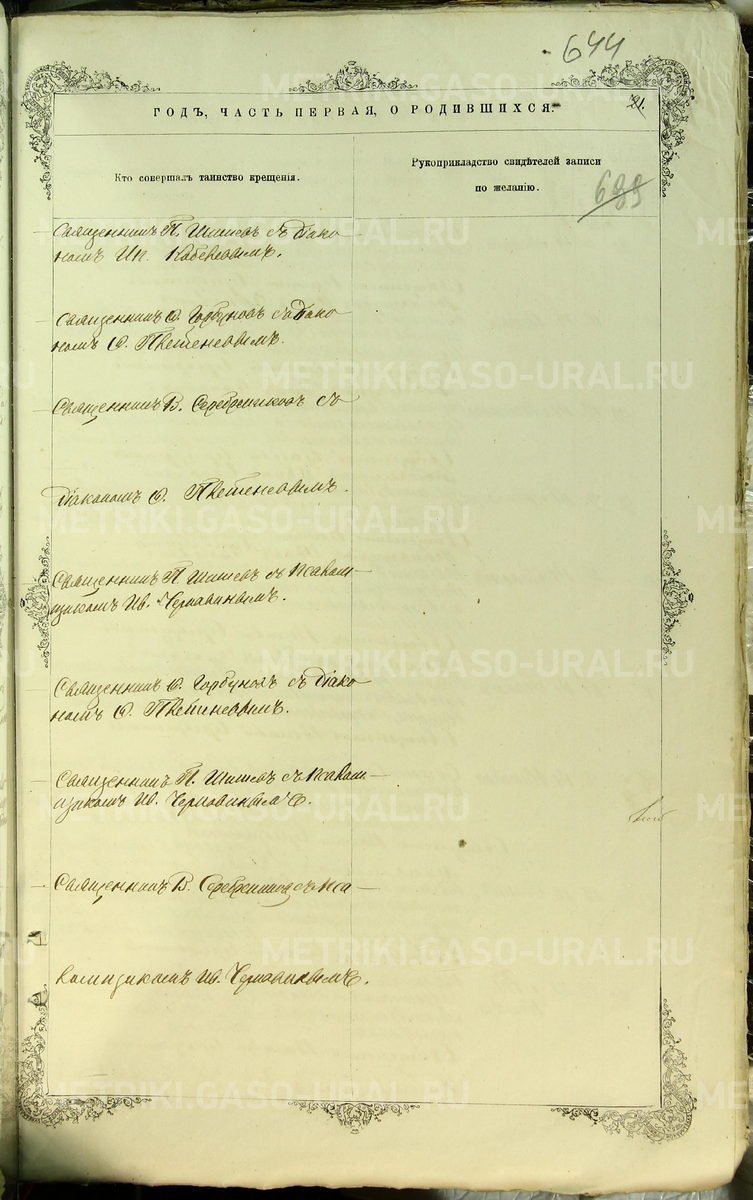 644
ГОДЪ, ЧАСТЬ ПЕРВАЯ, О РОДИВШИХСЯ.
21.
Кто совершалъ таинство крещенія.
Рукоприкладство свидѣтелей записи
по желанію.
689
Священникъ П. Шишевъ съ Діако
номъ Ип.
Священникъ Ѳ. Горбуновъ съ Діако
номъ Ѳ. Пѣтеневымъ.
Священникъ В. Серебренниковъ съ
Діакономъ Ѳ. Пѣтеневымъ.
Священникъ П. Шишевъ съ Псалом
щикомъ Ив. Чернавинымъ.
Священникъ Ѳ. Горбуновъ съ Діако
номъ Ѳ. Пѣтеневымъ.
Священникъ П. Шишевъ съ Псалом
щикомъ Ив. Чернавинымъ.
Священникъ В. Серебренниковъ съ Пса
ломщикомъ Ив. Чернавинымъ.
METRIKI.GASO-URAL.RU